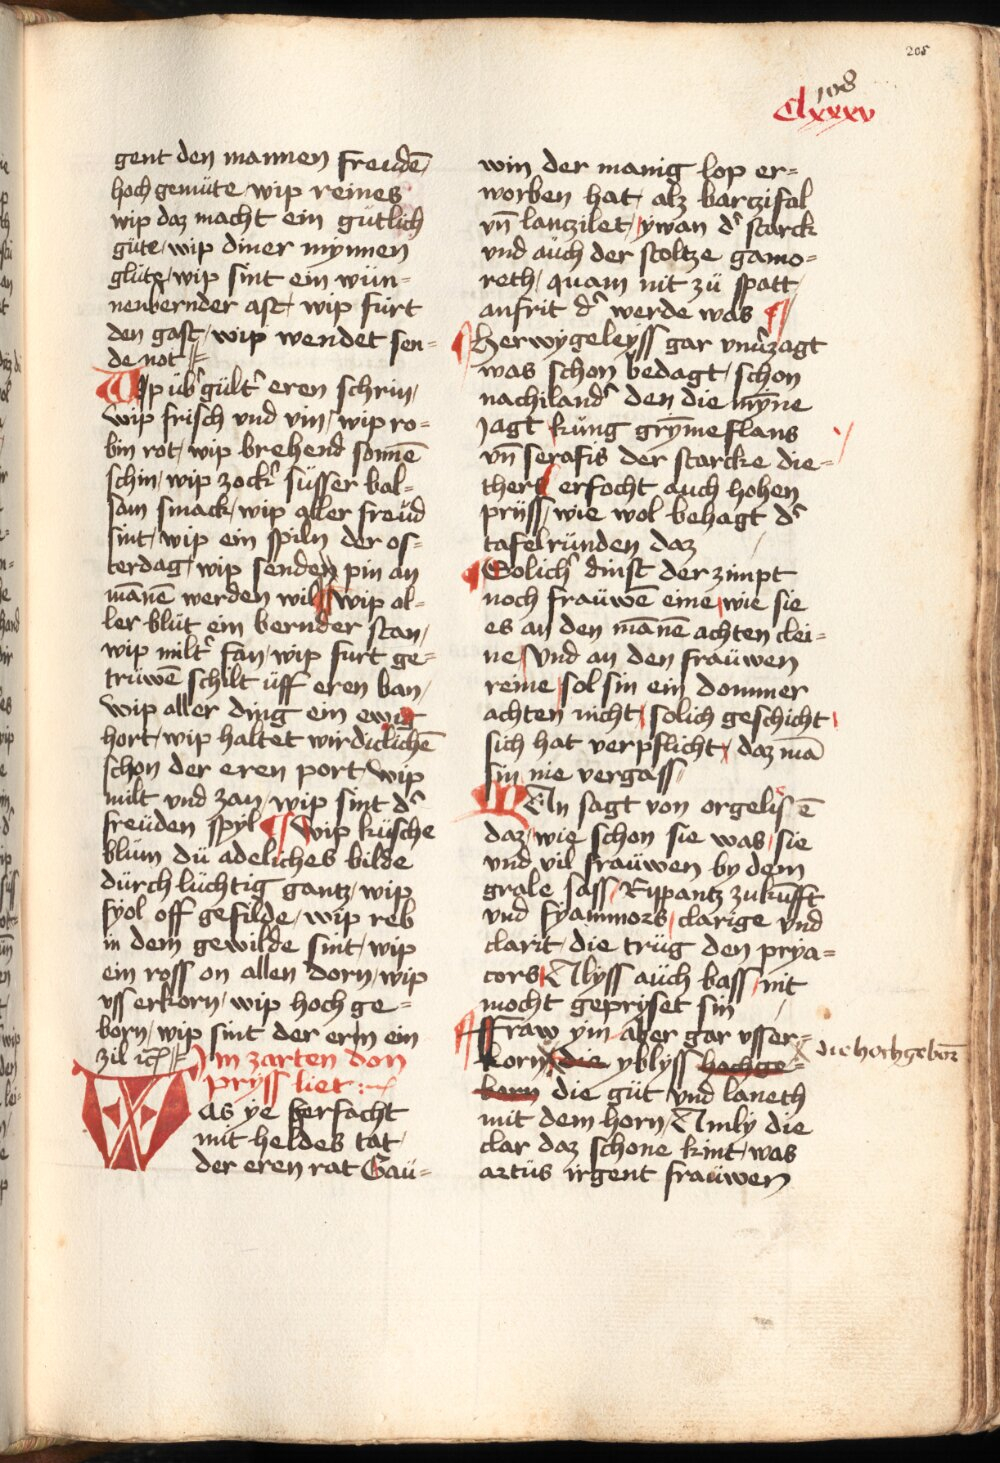 205
108
Clxxxv
gent den mannen freudē
hoch gemüte wip reines
wip daz macht ein gütlich
güte / wip diner mynnen
glüte / wip sint ein wün=
nenbernder ast wip fürt
den gast / wip wendet sen=
de not
Wip übʾgültʾ eren schrin /
wip frisch vnd vin / wip ro=
bin rot / wip brehend sonnē
schin / wip zockʾ süsser bal=
sam smack / wip aller freüd
sint / wip ein spiln der os=
terdag / wip senden pin an
mānē werden wil ¶ wip al=
ler blüt ein bernder stan /
wip miltʾ fan / wip furt ge=
trüwē schilt üff eren ban /
wip aller ding ein ewig
hort / wip haltet wirdiclichē
schon der eren port wip
milt vnd zan / wip sint dʾ
freüden spyl ¶ wip küsche
blüm dü adeliches bilde
dürchlüchtig gantz / wip
fyol off gefilde / wip reb
in dem gewilde sint / wip
ein ross on allen dorn / wip
vsserkorn / wip hoch ge=
born / wip sint der ern ein
zil ich
Im zarten don
pryss liet :~
Was ye erfacht
mit heldes tat /
der eren rat Gaü=
win der manig lop er=
worben hat / alz barczifal
vn̄ lanczilet / ywan dʾ starck
vnd aüch der stoltze gamo=
reth / quam nit zü spatt /
anfrit dʾ werde was ¶
herwygeleyss gar vnūʾzagt
was schon bedagt / schon
nachilandʾ den die mȳne
jagt küng gryme flans
vn̄ serafis der starcke die=
thert / erfocht auch hohen
pryss / wie wol behagt dʾ
tafelründen daz
Solichʾ dinst der zimpt
noch fraüwē eine / wie sie
es an den mānē achten clei=
ne / Vnd an den fraüwen
reine / sol sin ein dommer
achten nicht / solich geschicht /
sich hat verpflicht / daz mā
sin nie vergass
MAn sagt von orgelis ē
daz / wie schon sie was / sie
vnd vil fraüwen by dem
grale sass / Rippantz zukūfft
vnd fyammors / clarige vnd
clarit / die trüg den prya=
cors / Alyss aüch bass / nit
mocht gepryset sin /
Fraw ym aber gar vsser=
korn / die yblyss hochge=
born die güt vnd laneth
die hochgeborn̄
mit dem horn / Amly die
clar daz schone kint / was
artüs irgent fraüwen